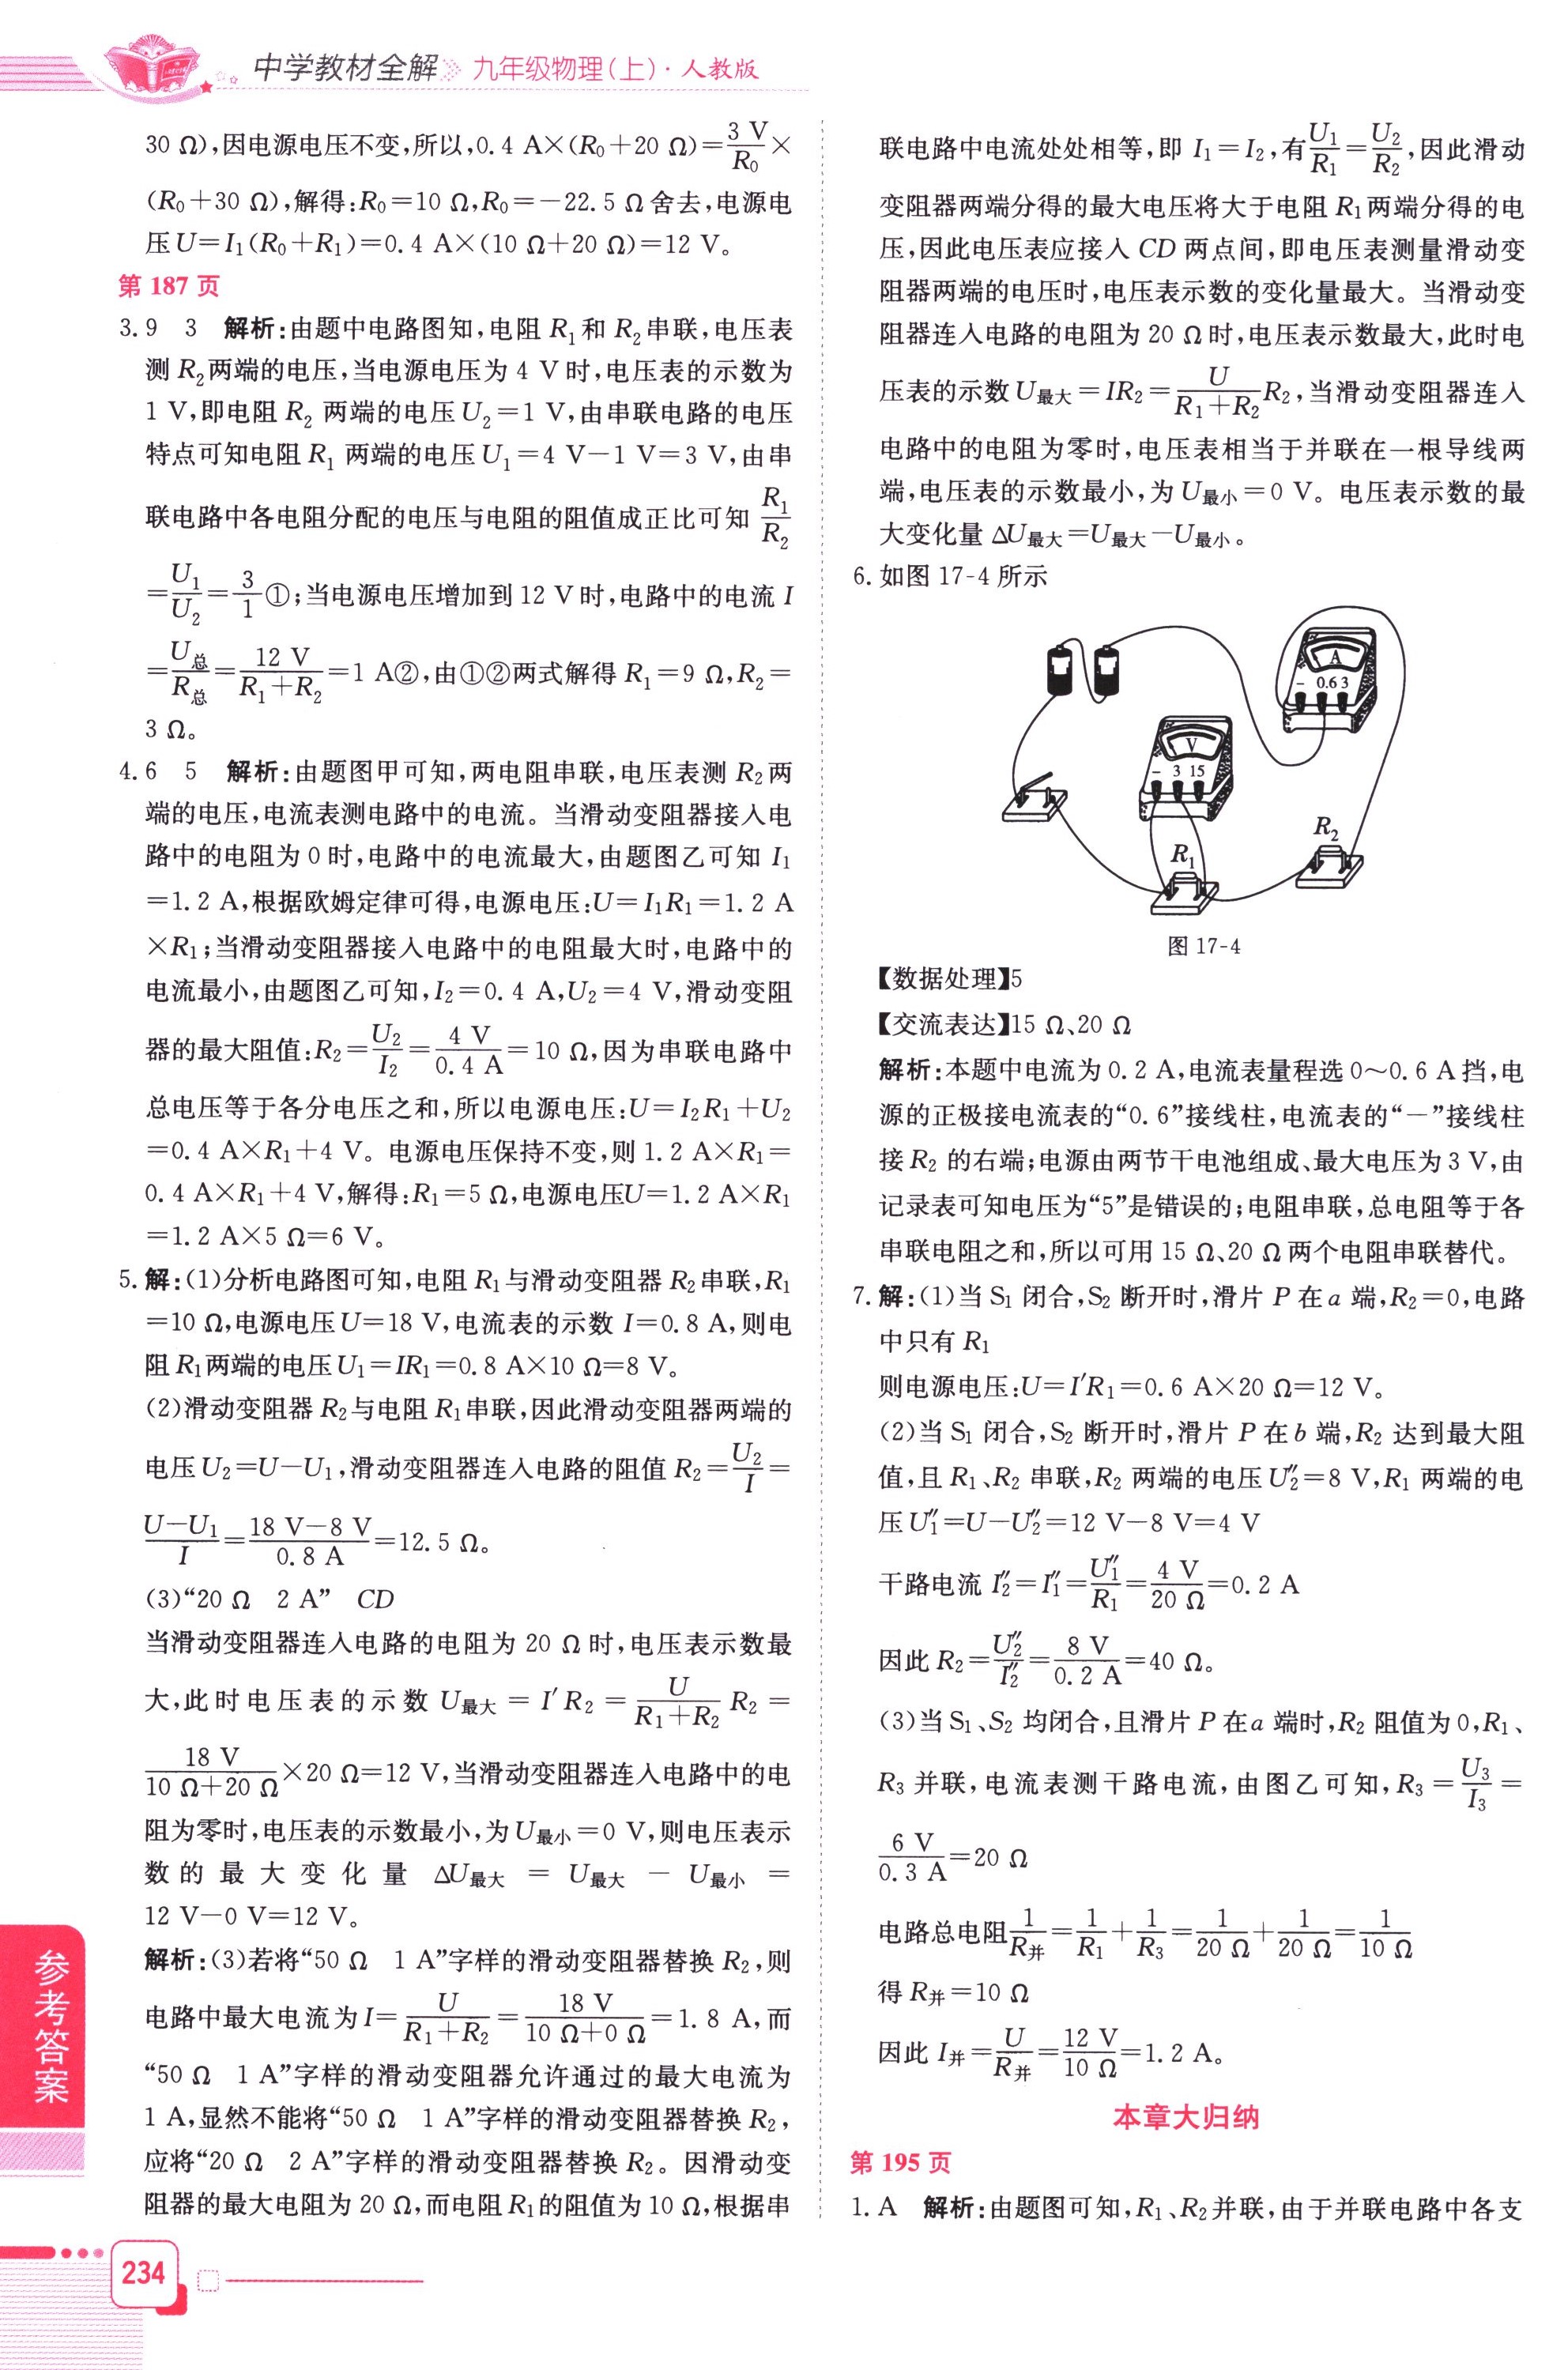 中学教材全解 九年级物理(上)·人教版
30 Ω),因电源电压不变,所以,0.4 A×(R₀+20 Ω)=3 V/R₀×
(R₀+30 Ω),解得:R₀=10 Ω,R₀=-22.5 Ω舍去,电源电
压U=I₁(R₀+R₁)=0.4 A×(10 Ω+20 Ω)=12 V。
第187页
3.9 3 解析:由题中电路图知,电阻R₁和R₂串联,电压表
测R₂两端的电压,当电源电压为4 V时,电压表的示数为
1 V,即电阻R₂两端的电压U₂=1 V,由串联电路的电压
特点可知电阻R₁两端的电压U₁=4 V-1 V=3 V,由串
联电路中各电阻分配的电压与电阻的阻值成正比可知 R₁/R₂
=U₁/U₂=3/1①;当电源电压增加到12 V时,电路中的电流I
=U总/R总=12 V/(R₁+R₂)=1 A②,由①②两式解得R₁=9 Ω,R₂=
3 Ω。
4.6 5 解析:由题图甲可知,两电阻串联,电压表测R₂两
端的电压,电流表测电路中的电流。当滑动变阻器接入电
路中的电阻为0时,电路中的电流最大,由题图乙可知I₁
=1.2 A,根据欧姆定律可得,电源电压:U=I₁R₁=1.2 A
×R₁;当滑动变阻器接入电路中的电阻最大时,电路中的
电流最小,由题图乙可知,I₂=0.4 A,U₂=4 V,滑动变阻
器的最大阻值:R₂=U₂/I₂=4 V/0.4 A=10 Ω,因为串联电路中
总电压等于各分电压之和,所以电源电压:U=I₂R₁+U₂
=0.4 A×R₁+4 V。电源电压保持不变,则1.2 A×R₁=
0.4 A×R₁+4 V,解得:R₁=5 Ω,电源电压U=1.2 A×R₁
=1.2 A×5 Ω=6 V。
5.解:(1)分析电路图可知,电阻R₁与滑动变阻器R₂串联,R₁
=10 Ω,电源电压U=18 V,电流表的示数I=0.8 A,则电
阻R₁两端的电压U₁=IR₁=0.8 A×10 Ω=8 V。
(2)滑动变阻器R₂与电阻R₁串联,因此滑动变阻器两端的
电压U₂=U-U₁,滑动变阻器连入电路的阻值R₂=U₂/I=
(U-U₁)/I=(18 V-8 V)/0.8 A=12.5 Ω。
(3)“20 Ω 2 A” CD
当滑动变阻器连入电路的电阻为20 Ω时,电压表示数最
大,此时电压表的示数U最大=I′R₂=U/(R₁+R₂) R₂=
18 V/(10 Ω+20 Ω)×20 Ω=12 V,当滑动变阻器连入电路中的电
阻为零时,电压表的示数最小,为U最小=0 V,则电压表示
数的最大变化量ΔU最大=U最大-U最小=
12 V-0 V=12 V。
解析:(3)若将“50 Ω 1 A”字样的滑动变阻器替换R₂,则
电路中最大电流为I=U/(R₁+R₂)=18 V/(10 Ω+0 Ω)=1.8 A,而
“50 Ω 1 A”字样的滑动变阻器允许通过的最大电流为
1 A,显然不能将“50 Ω 1 A”字样的滑动变阻器替换R₂,
应将“20 Ω 2 A”字样的滑动变阻器替换R₂。因滑动变
阻器的最大电阻为20 Ω,而电阻R₁的阻值为10 Ω,根据串
联电路中电流处处相等,即I₁=I₂,有U₁/R₁=U₂/R₂,因此滑动
变阻器两端分得的最大电压将大于电阻R₁两端分得的电
压,因此电压表应接入CD两点间,即电压表测量滑动变
阻器两端的电压时,电压表示数的变化量最大。当滑动变
阻器连入电路的电阻为20 Ω时,电压表示数最大,此时电
压表的示数U最大=IR₂=U/(R₁+R₂)R₂,当滑动变阻器连入
电路中的电阻为零时,电压表相当于并联在一根导线两
端,电压表的示数最小,为U最小=0 V。电压表示数的最
大变化量ΔU最大=U最大-U最小。
6.如图17-4所示
A
- 0.6 3
V
- 3 15
R₁
R₂
图17-4
【数据处理】5
【交流表达】15 Ω、20 Ω
解析:本题中电流为0.2 A,电流表量程选0~0.6 A挡,电
源的正极接电流表的“0.6”接线柱,电流表的“-”接线柱
接R₂的右端;电源由两节干电池组成、最大电压为3 V,由
记录表可知电压为“5”是错误的;电阻串联,总电阻等于各
串联电阻之和,所以可用15 Ω、20 Ω两个电阻串联替代。
7.解:(1)当S₁闭合,S₂断开时,滑片P在a端,R₂=0,电路
中只有R₁
则电源电压:U=I′R₁=0.6 A×20 Ω=12 V。
(2)当S₁闭合,S₂断开时,滑片P在b端,R₂达到最大阻
值,且R₁、R₂串联,R₂两端的电压U₂″=8 V,R₁两端的电
压U₁″=U-U₂″=12 V-8 V=4 V
干路电流I₂″=I₁″=U₁″/R₁=4 V/20 Ω=0.2 A
因此R₂=U₂″/I₂″=8 V/0.2 A=40 Ω。
(3)当S₁、S₂均闭合,且滑片P在a端时,R₂阻值为0,R₁、
R₃并联,电流表测干路电流,由图乙可知,R₃=U₃/I₃=
6 V/0.3 A=20 Ω
电路总电阻1/R并=1/R₁+1/R₃=1/20 Ω+1/20 Ω=1/10 Ω
得R并=10 Ω
因此I并=U/R并=12 V/10 Ω=1.2 A。
本章大归纳
第195页
1.A 解析:由题图可知,R₁、R₂并联,由于并联电路中各支
参考答案
234